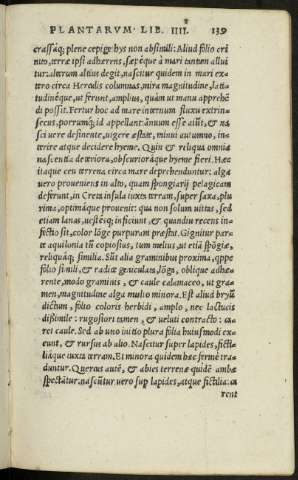 PLANTARVM LIB. IIII. 139
crassaq; plene cepige hys non absimili: Aliud folio cri
nito, terræ ipsi adhærens, sæpéque à mari tantum allui
tur: alterum altius degit, nascitur quidem in mari ex
tero circa Herculis columnas, mira magnitudine, la
tudinéque, ut ferunt, amplius, quàm ut manu apprehẽ
di possit. Fertur hoc ad mare internum fluxu extrin
secus, porrumq; id appellant: annuum esse aiũt, & na
sci uere desinente, uigere æstate, minui autumno, in
terire atque decidere hyeme. Quin & reliqua omnia
nascentia deteriora, obscurioráque hyeme fieri. Hæc
itaque ceu terrena circa mare deprehenduntur: alga
uero proueniens in alto, quam spongiarij pelagicam
deferunt, in Creta insula iuxta terram, super saxa, plu
rima, optimáque prouenit: qua non solum uittas, sed
etiam lanas, uestésq; inficiunt, & quandiu recens in-
fectio sit, color lõge purpuram præstat. Gignitur par
te aquilonia tũ copiosius, tum melius, ut etiã spõgiæ,
reliquáq; similia. Sũt alia graminibus proxima, quppe
folio simili, & radice geniculata, lõga, oblique adhæ-
rente, modo graminis, & caule calamaceo, ut gra-
men, magnitudine alga multo minora. Est aliud bryũ
dictum, folio coloris herbidi, amplo, nec lactucis
dissimile: rugosiori tamen, & uelut contracto: ca-
ret caule. Sed ab uno initio plura folia huiusmodi ex-
eunt, & rursus ab alio. Nascitur super lapides, ficti-
liáque iuxta terram. Et minora quidem hæc fermè tra
duntur. Quercus autẽ, & abies terrenæ quidẽ ambæ
spectãtur. nascũtur uero sup lapides, atque fictilia: ca
rent